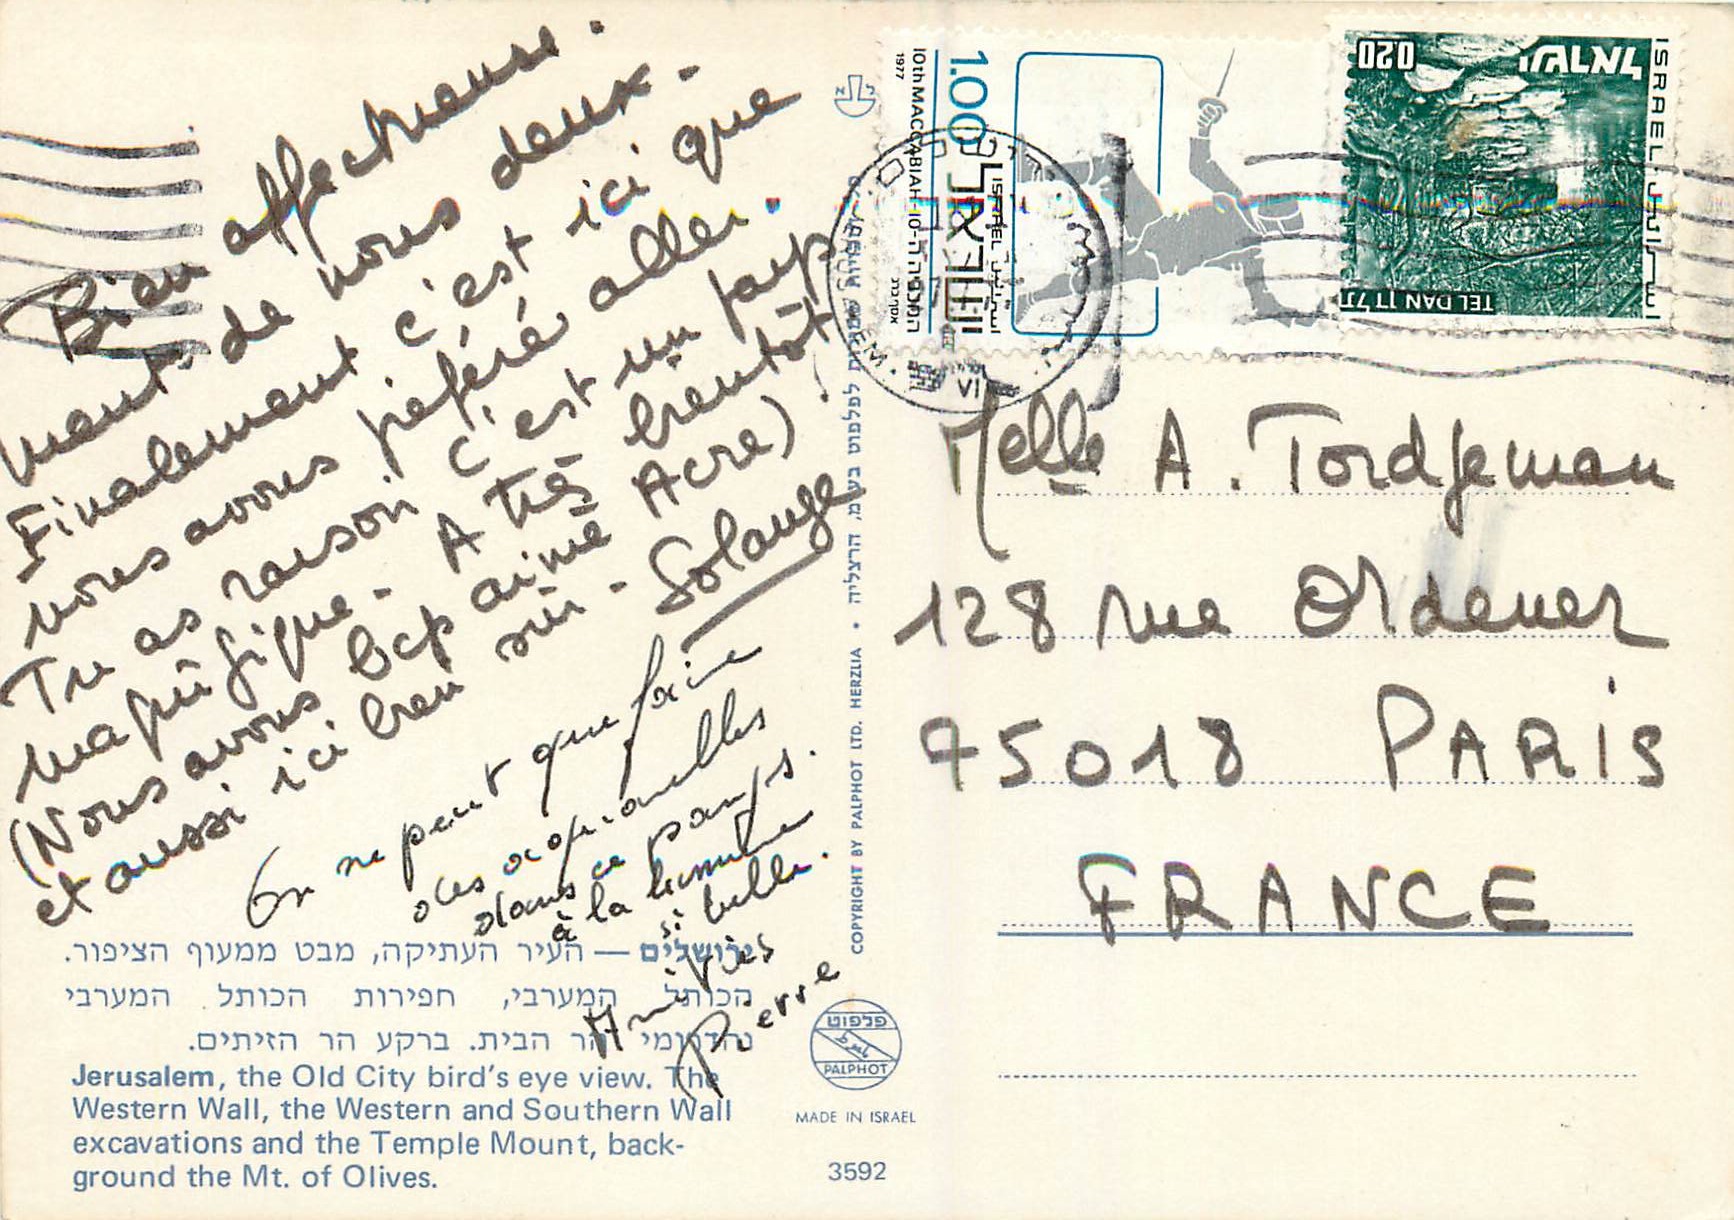 Bien affectueuse.
ment de nous deux -
Finalement c'est ici que
nous avons préféré aller.
Tu as raison c'est un pays
magnifique - A très bientôt
(Nous avons bcp aimé Acre) !
et aussi ici bien sûr - Solange
On ne peut que faire
des aquarelles
dans ce pays.
à la lumière
si belle.
Amitiés
Pierre
ירושלים — העיר העתיקה, מבט ממעוף הציפור.
הכותל המערבי, חפירות הכותל המערבי
והדרומי והר הבית. ברקע הר הזיתים.
Jerusalem, the Old City bird's eye view. The
Western Wall, the Western and Southern Wall
excavations and the Temple Mount, back-
ground the Mt. of Olives.
שמורות לפלפוט בע״מ, הרצליה • COPYRIGHT BY PALPHOT LTD. HERZLIA
פלפוט
PALPHOT
MADE IN ISRAEL
3592
1.00
ישראל
ISRAEL
اسرائيل
10th MACCABIAH
המכביה ה-10
1977
0.20
ישראל
ISRAEL
اسرائيل
TEL DAN תל דן
Melle A. Tordjeman
128 rue Ordener
75018 PARIS
FRANCE